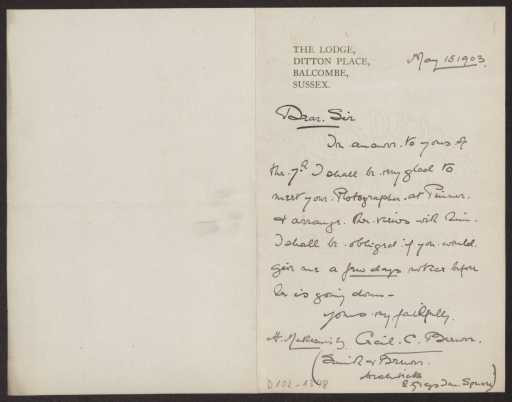 THE LODGE,
DITTON PLACE,
BALCOMBE,
SUSSEX.
May 15 1903.
Dear Sir
In answr. to yours of
the 7th I shall be very glad to
meet your Photographer at Pinner
& arrange the views with him.
I shall be obliged if you would
give me a few days notice before
he is going down -
Yours very faithfully.
Cecil. C. Brewer.
(Smith & Brewer
Architects
Grays Inn Square)